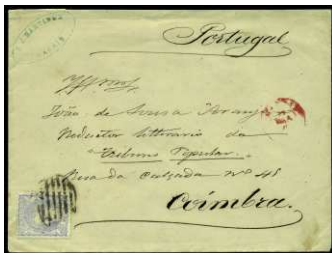 Portugal
João de Sousa
Redactor litterario da
"Tribuno Popular"
Rua da Calçada nº 48
Coimbra.